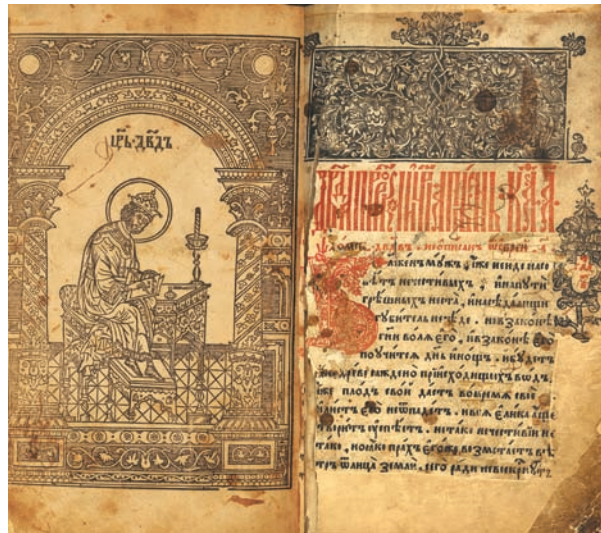 ЦР҃Ь·ДВ҃ДЪ
дв҃двъ . неѡписанъ ѿеврей . а҃
блаженъ мужъ , иже неиде насо
вѣтъ нечестивыхъ , инапути
грѣшныхъ неста , инасѣдалищи
губитель несѣде . нов законѣ
гн҃и волѧ его , ив законѣ его
поучитсѧ дн҃ь инощь . ибудетъ
древо саждено приисходищихъ водъ ,
еже плодъ свой дастъ вовремѧ свое
илистъ его неѿпадетъ . ивсѧ елика аще
творитъ успѣетъ . нетако нечестивии не
тако , ноꙗко прахъ егоже возмѣтаетъ вѣ
тръ ѿлица земли , сего ради